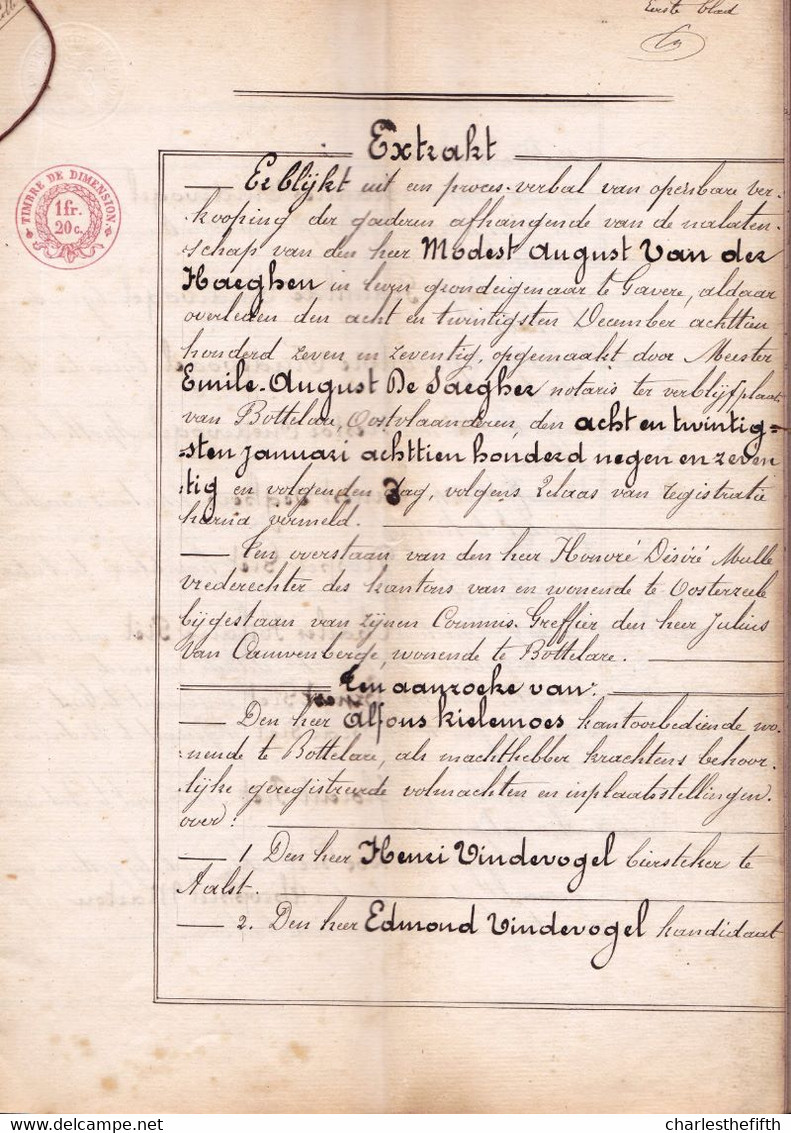 Eerste blad
TIMBRE DE DIMENSION
1 fr.
20 c.
Extrakt
Er blijkt uit een proces-verbaal van openbare ver-
kooping der goederen afhangende van de nalaten-
schap van den heer Modest August Van der
Haeghen in leven grondeigenaar te Gavere, aldaar
overleden den acht en twintigsten December achttien
honderd zeven en zeventig, opgemaakt door Meester
Emile-August De Saegher notaris ter verblijfplaats
van Bottelare, Oostvlaanderen, den acht en twintig-
sten Januari achttien honderd negen en zeven
tig en volgenden dag, volgens relaas van registratie
harna vermeld.
Ten overstaan van den heer Honoré Désiré Mulle
vrederechter des kantons van en wonende te Oosterzeele
bijgestaan van zijnen Commis-Greffier den heer Julius
Van Cauwenberge, wonende te Bottelare.
Ten aanzoeke van:
Den heer Alfons Kielemoes kantoorbediende wo-
nende te Bottelare, als machthebber krachtens behoor-
lijke geregistreerde volmachten en inplaatsstellingen
over:
1 Den heer Henri Vindevogel biersteker te
Aalst.
2. Den heer Edmond Vindevogel kandidaat
charlesthefifth